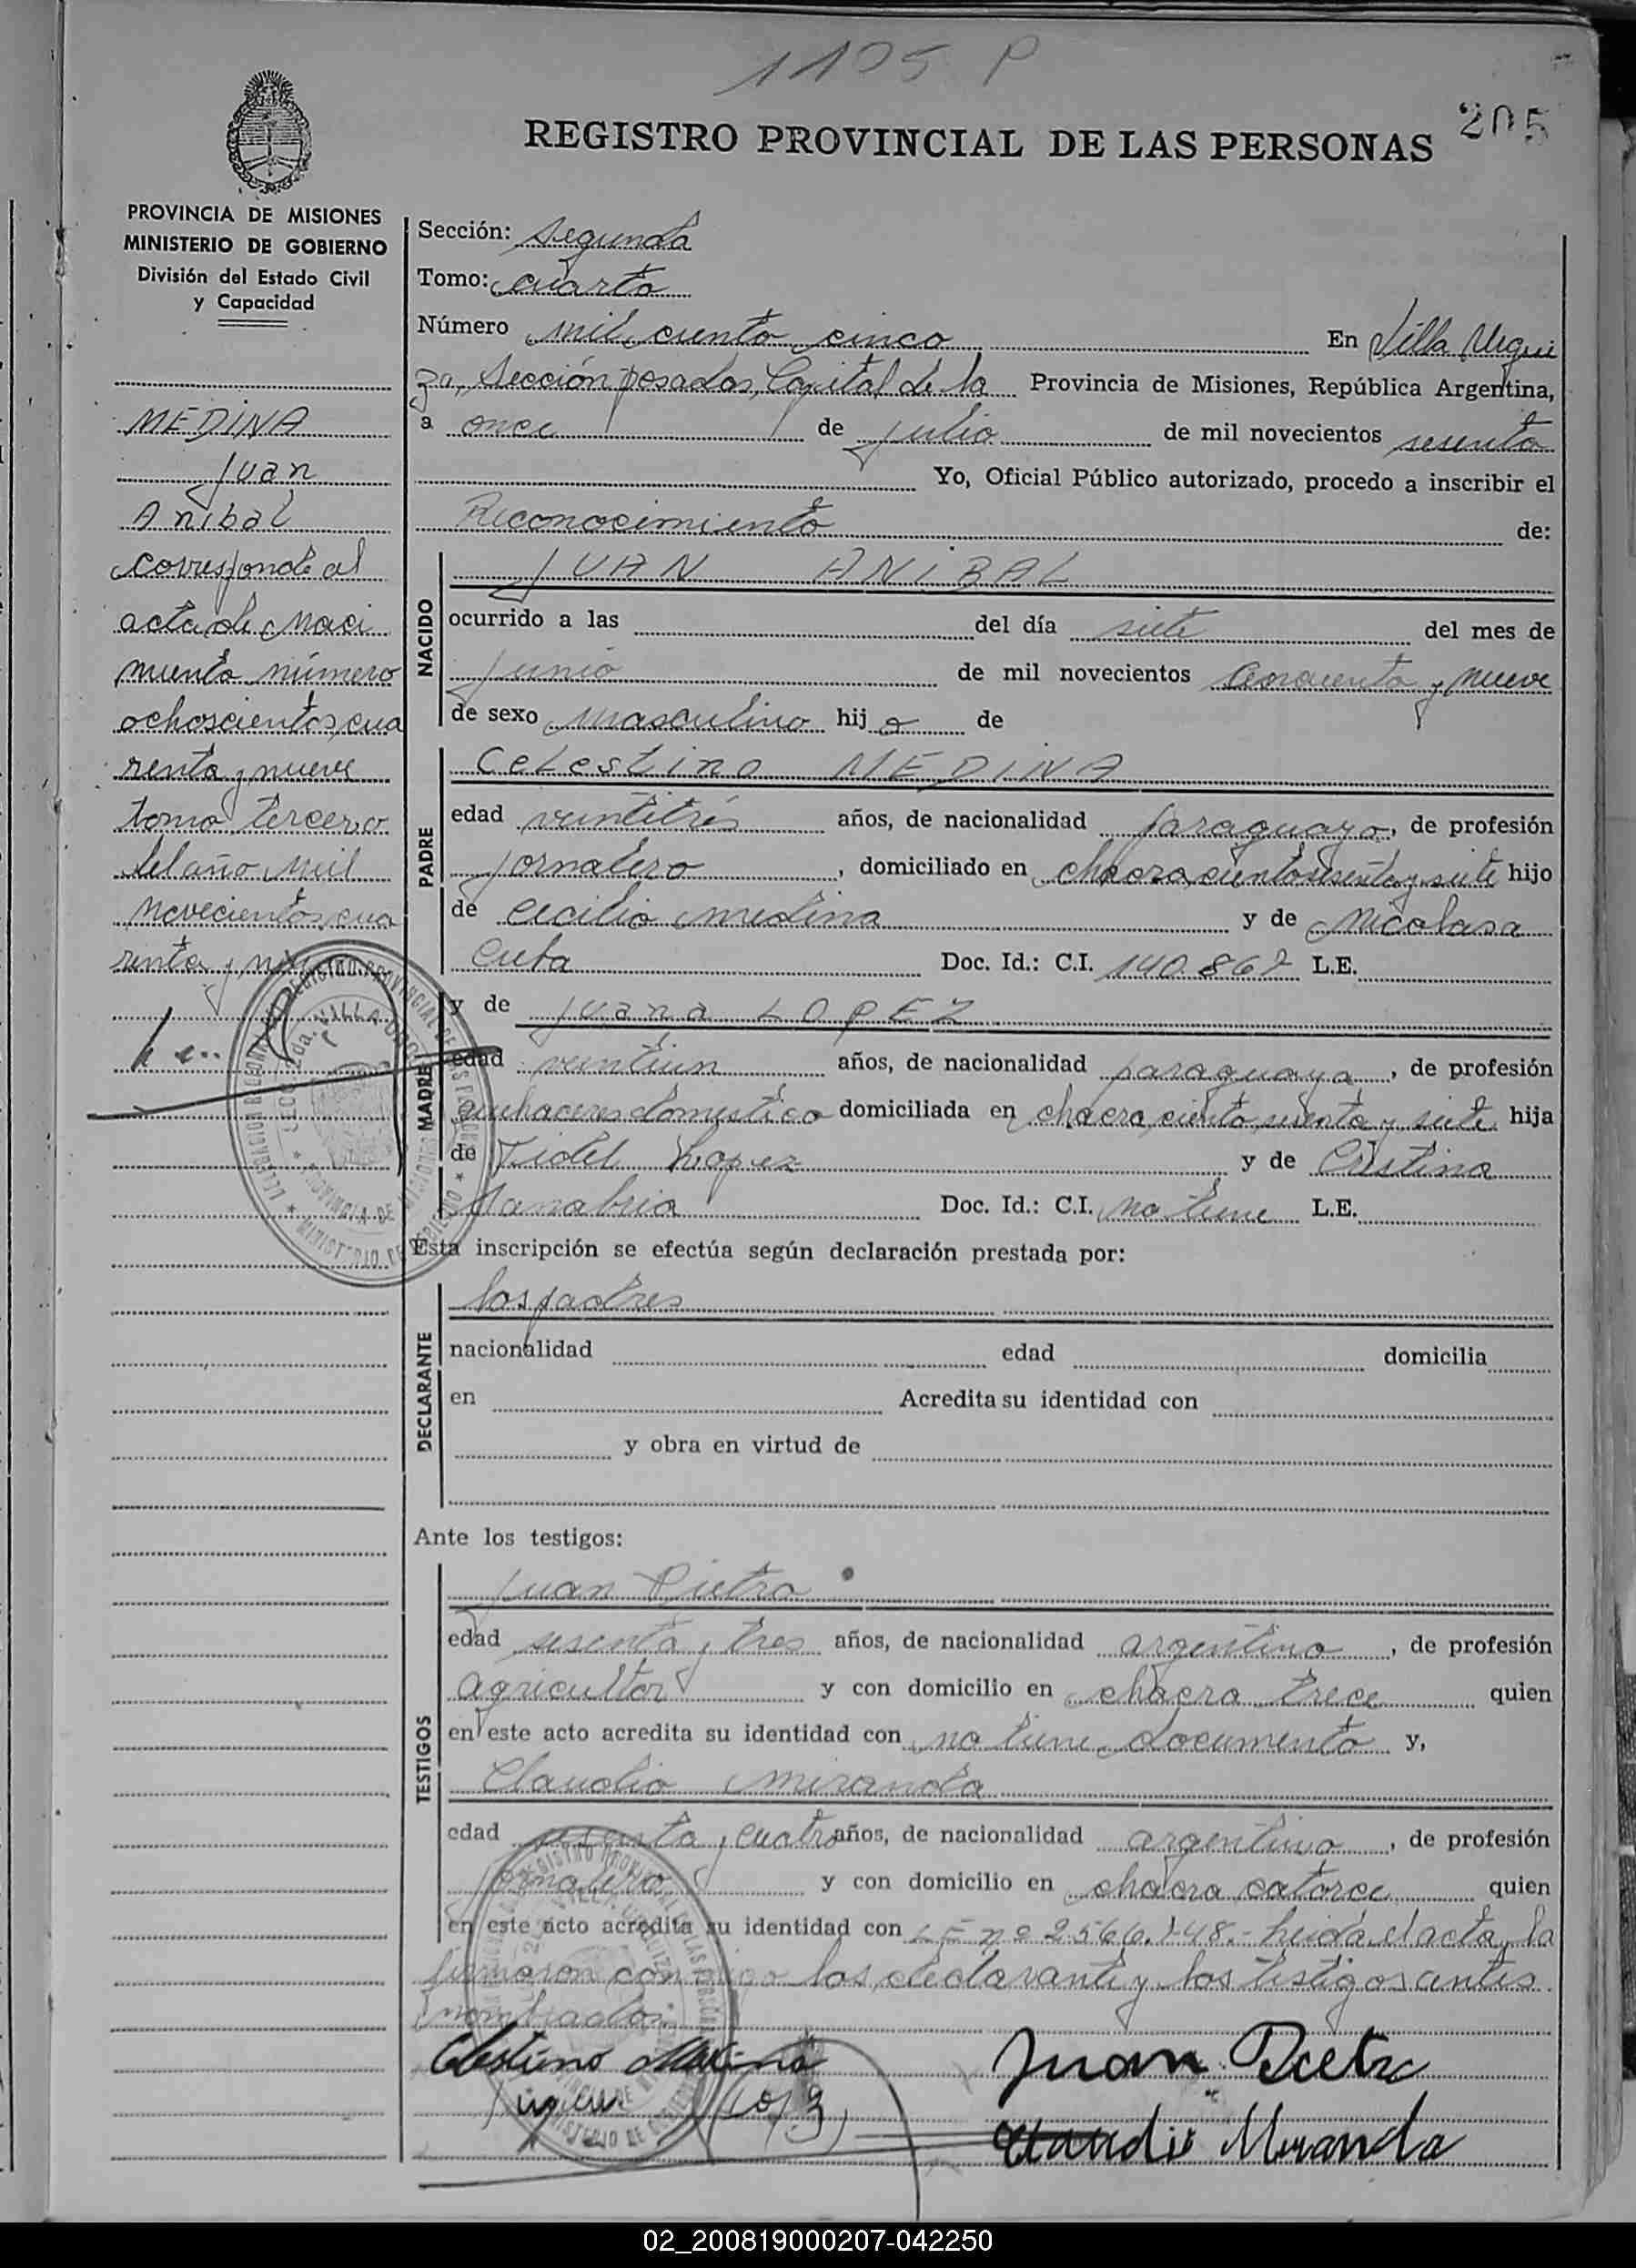 1105 P
205
REGISTRO PROVINCIAL DE LAS PERSONAS
PROVINCIA DE MISIONES
MINISTERIO DE GOBIERNO
División del Estado Civil
y Capacidad
MEDINA
Juan
Anibal
corresponde al
acta de Naci
miento número
ochoscientos cua
renta y nueve
tomo tercero
del año mil
novecientos cua
renta y
Sección: Segunda
Tomo: cuarto
Número mil ciento cinco En Villa Urqui
za, Sección posadas, Capital de la Provincia de Misiones, República Argentina,
a once de julio de mil novecientos sesenta
Yo, Oficial Público autorizado, procedo a inscribir el
Reconocimiento de:
NACIDO
JUAN ANIBAL
ocurrido a las del día siete del mes de
junio de mil novecientos cuarenta y nueve
de sexo masculino hijo de
PADRE
Celestino MEDINA
edad veintitrés años, de nacionalidad paraguayo, de profesión
jornalero, domiciliado en chacra ciento sesenta y siete hijo
de Cecilio Medina y de Nicolasa
Doc. Id.: C.I. 140.867 L.E.
MADRE
y de Juana LOPEZ
edad veintiun años, de nacionalidad paraguaya, de profesión
quehaceres domestico domiciliada en chacra ciento sesenta y siete hija
de Fidel Lopez y de Cristina
Sanabria Doc. Id.: C.I. no tiene L.E.
Esta inscripción se efectúa según declaración prestada por:
DECLARANTE
los padres
nacionalidad edad domicilia
en Acredita su identidad con
y obra en virtud de
Ante los testigos:
TESTIGOS
Juan Pietro
edad sesenta y tres años, de nacionalidad argentino, de profesión
agricultor y con domicilio en chacra trece quien
en este acto acredita su identidad con no tiene documento y,
Claudio Miranda
edad sesenta y cuatro años, de nacionalidad argentino, de profesión
jornalero y con domicilio en chacra catorce quien
en este acto acredita su identidad con LE nº 2566.148.- leida el acta, la
firmaron conmigo los declarante y los testigos antes
nombrados.
Celestino Medina
Juan Pietro
Claudio Miranda
02_200819000207-042250